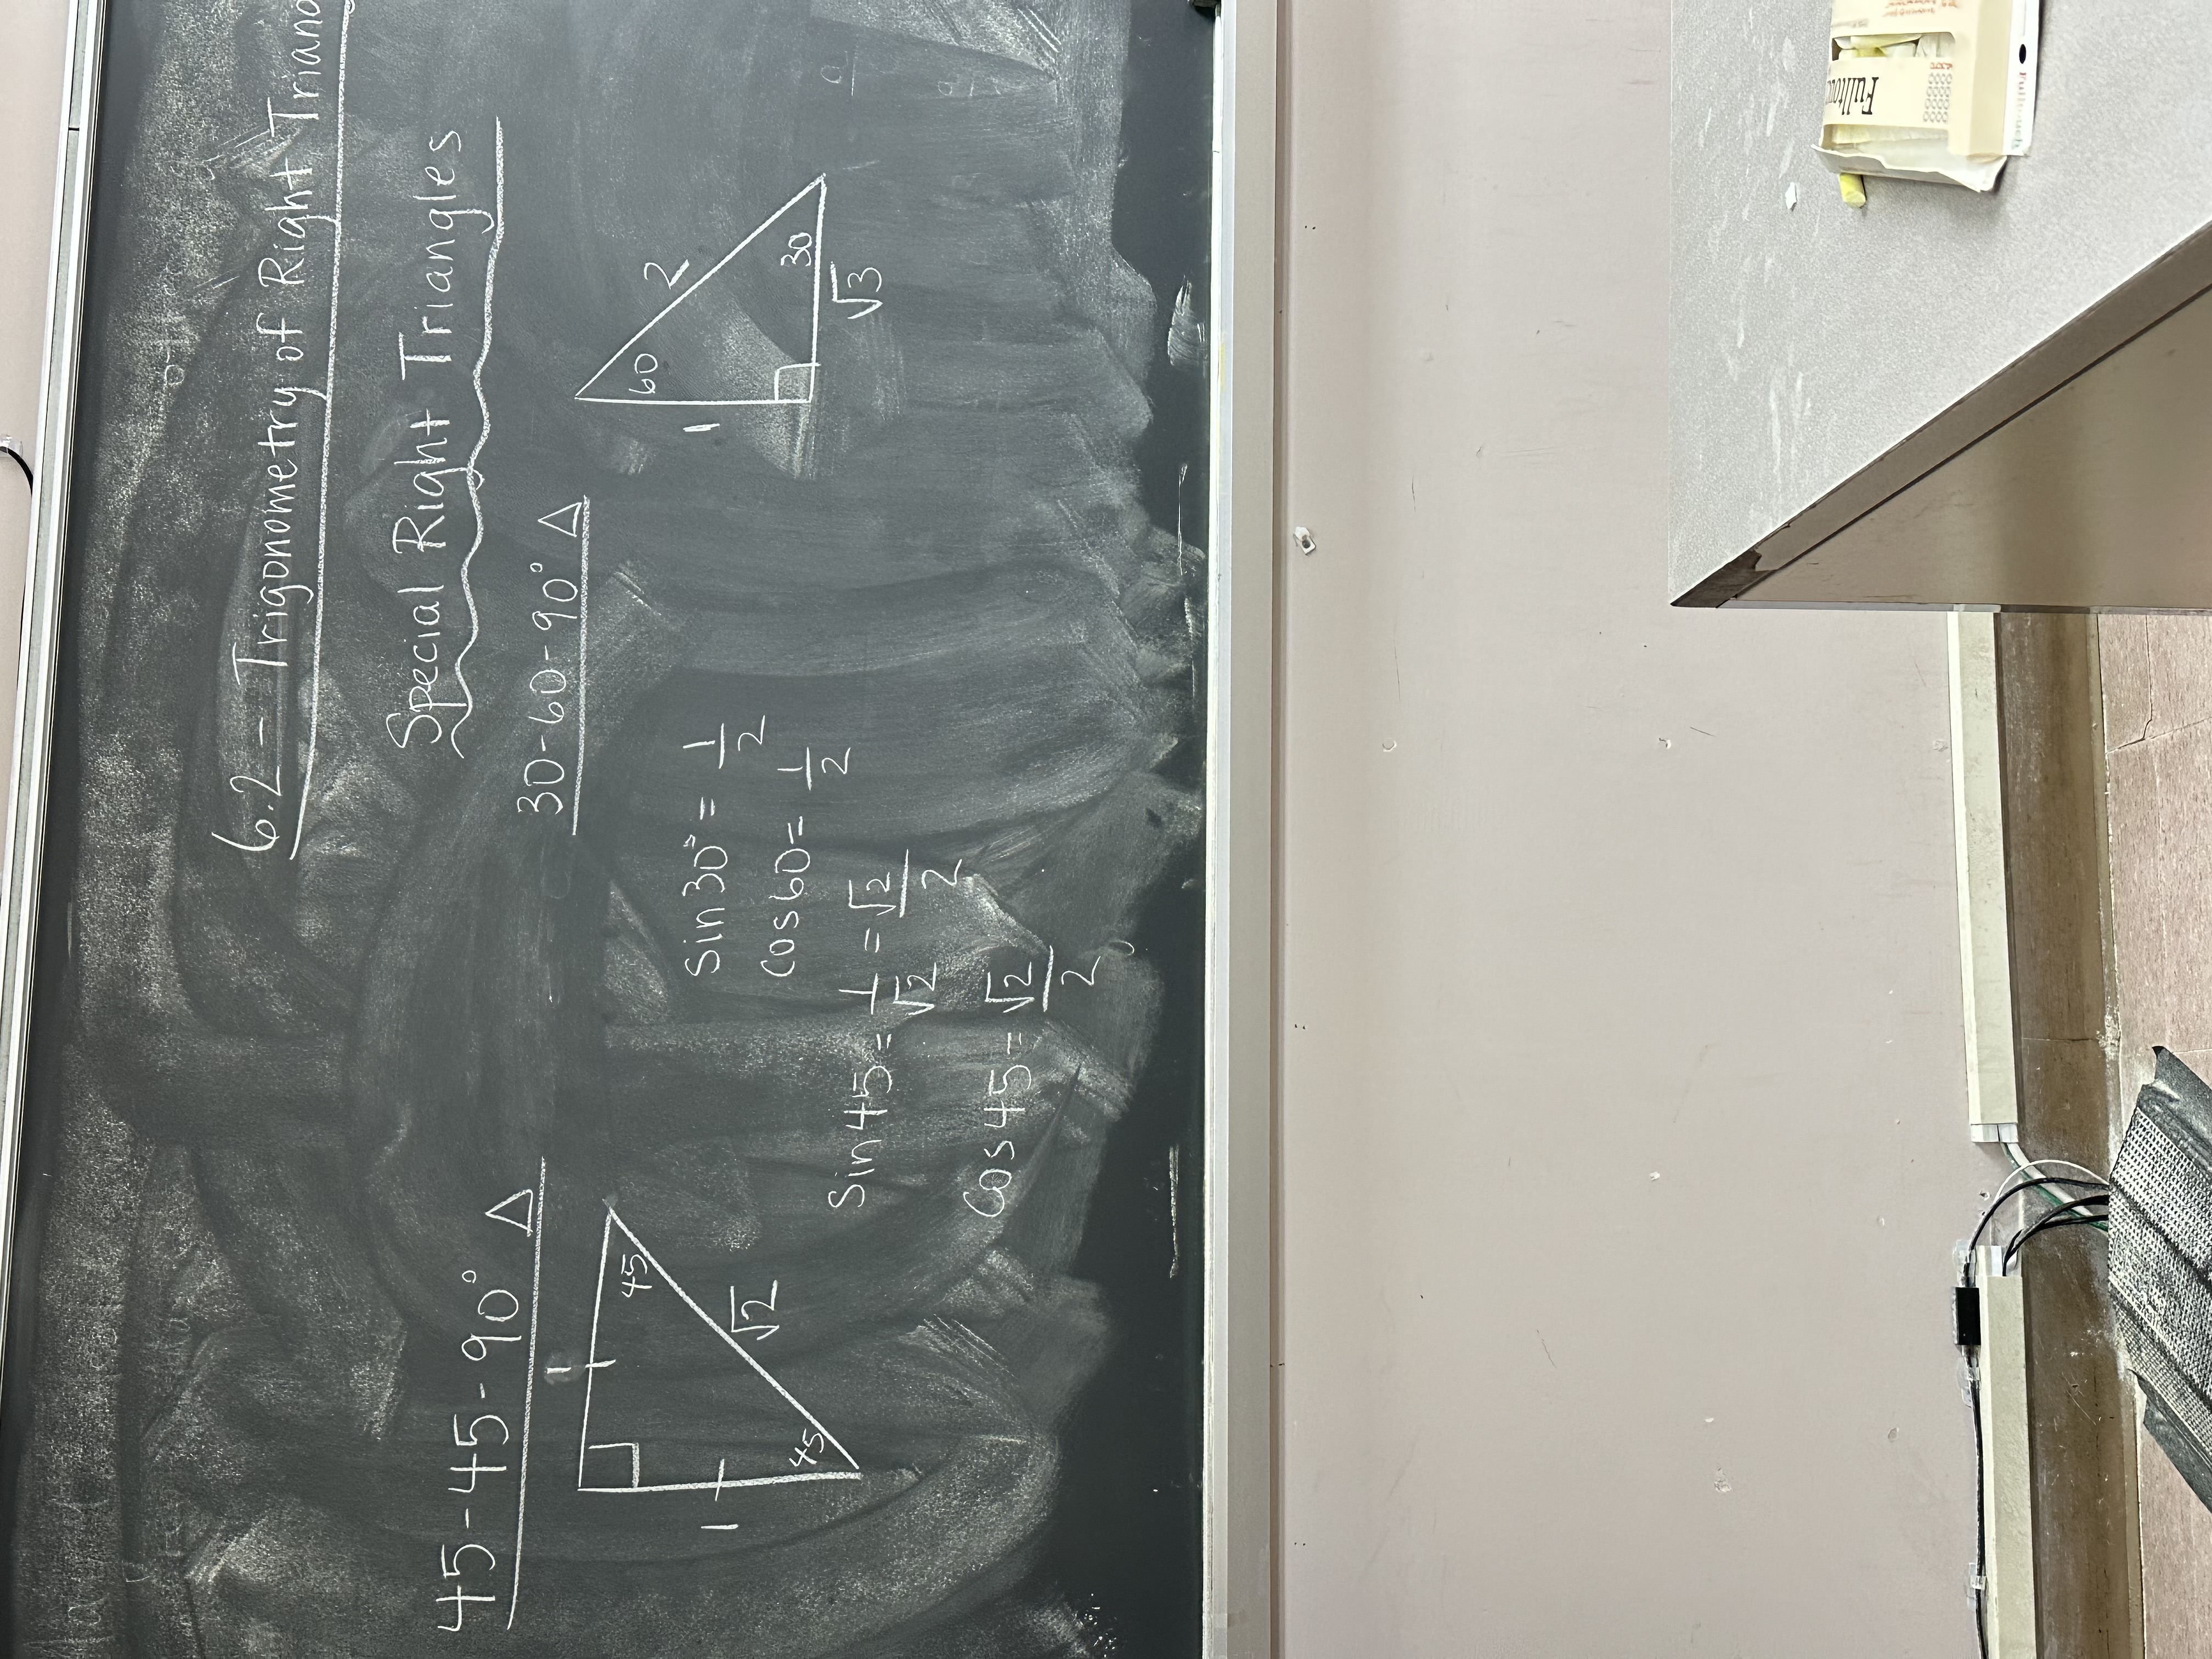 6.2 - Trigonometry of Right Triang
Special Right Triangles
45-45-90° △
1
45
1
√2
45
30-60-90° △
60
2
1
30
√3
sin30° = 1/2
cos60 = 1/2
Sin45 = 1/√2 = √2/2
Cos45 = √2/2
Fulltou
Fulltouch